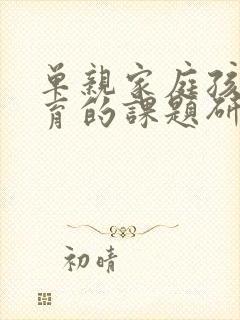 單親家庭孩
育的課題研
初晴